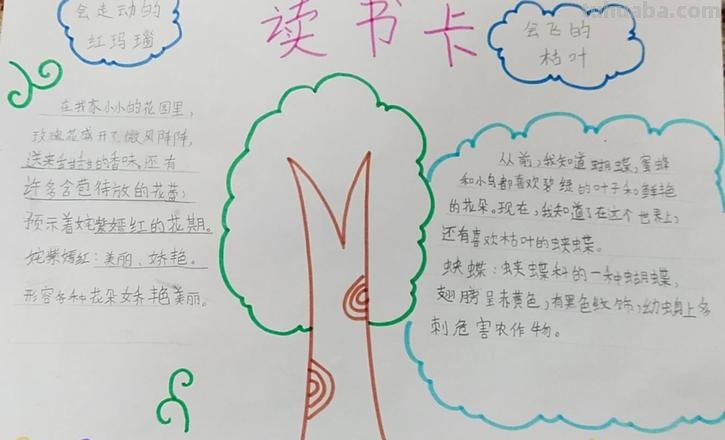 tuhuaba.com
会走动的
红玛瑙
读书卡
会飞的
枯叶
在我家小小的花园里,
玫瑰花盛开了,微风阵阵,
送来甜甜的香味,还有
许多含苞待放的花蕾,
预示着姹紫嫣红的花期。
姹紫嫣红:美丽、娇艳。
形容各种花朵娇艳美丽。
从前,我知道蝴蝶,蜜蜂
和小鸟都喜欢碧绿的叶子和鲜艳
的花朵。现在,我知道了在这个世界上,
还有喜欢枯叶的蛱蝶。
蛱蝶:蛱蝶科的一种蝴蝶,
翅膀呈赤黄色,有黑色纹饰,幼虫身上多
刺危害农作物。